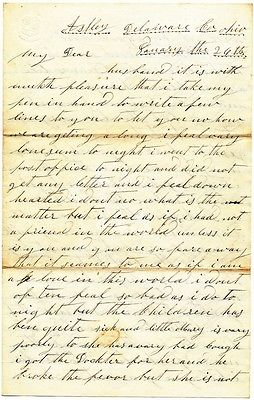 Astley Delaware Co. ohio
January the 29 186
my Dear
husband it is with
mutch pleasure that i take my
pen in hand to write a few
lines to you to let you no how
we are geting a long i feal vary
lonesum to night i went to the
post office to night and did not
get any letter and i feal down
hearted i dont no what is the
matter but i feal as if i had not
a friend in the world unless it
is you and you are so far away
that it seames to me as if i am
a lone in this world i dont
of ten feal so bad as i do to
night but the Children has
ben quite sick and little mary is vary
poorly to she has a vary bad cough
i got the Dockter for her and he
broke the fevor but she is not